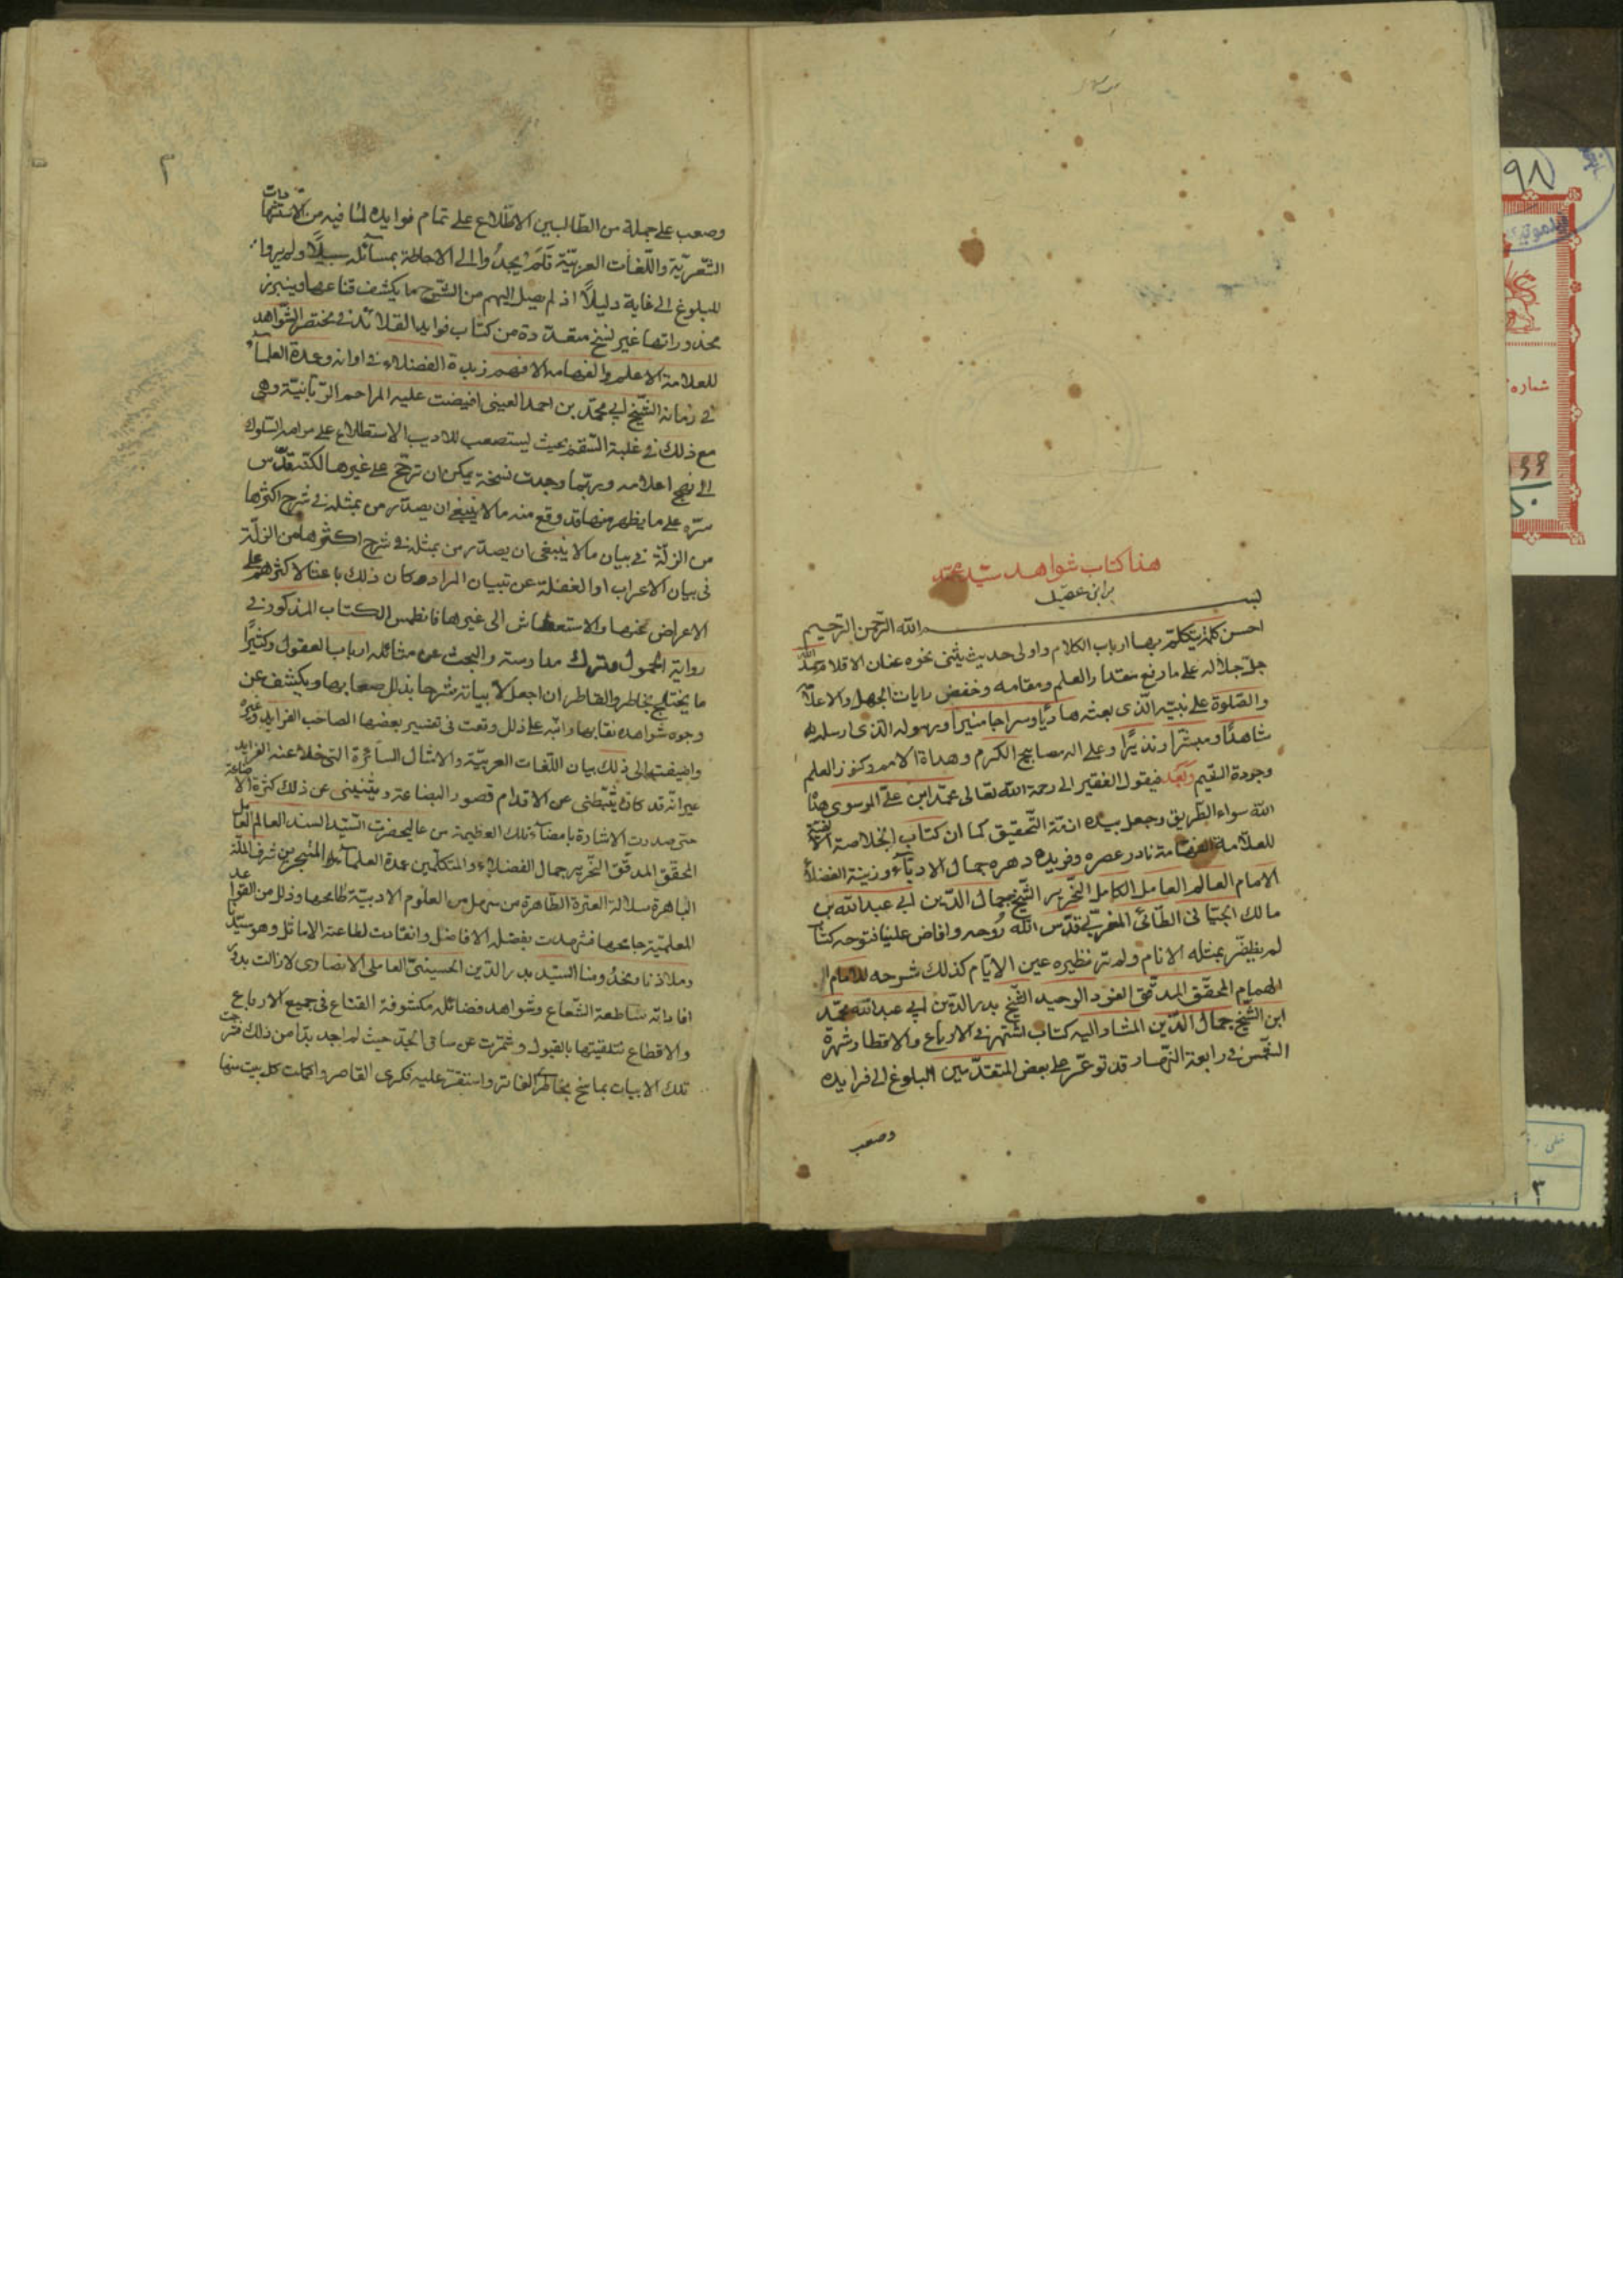 هذا كتاب شواهد سيّد محمّد
بر ابن عقيل
بسـم الله الرّحمن الرّحيم
احسن كلمة يتكلّم بها ارباب الكلام واولى حديث يثنى نحوه عنان الاقلام حمد الله
جلّ جلاله على ما رفع مقدار العلم ومقامه وخفض رايات الجهل والاعلام
والصّلوة على نبيّه الّذى بعثه هاديًا وسراجا منيرا ورسوله الّذى ارسله
شاهدًا ومبشّرا ونذيرًا وعلى اله مصابيح الكرم وهداة الامم وكنوز العلم
وجودة القيم وبعد فيقول الفقير الى رحمة الله تعالى محمّد ابن علىّ الموسوى هداه
الله سواء الطّريق وجعل بيده ازمّة التّحقيق كما ان كتاب الخلاصة الالفيّة
للعلّامة الفهّامة نادر عصره وفريد دهره جمال الادبآء وزينة الفضلآء
الامام العالم العامل الكامل النّحرير الشّيخ جمال الدّين ابى عبد الله بن
مالك الجيّانى الطّائى المغربى قدّس الله روحه وافاض علينا فتوحه كتاب
لم يظفر بمثله الانام ولم تر نظيره عين الايّام كذلك شرحه للامام
الهمام المحقّق المدقّق الفرد الوحيد الشّيخ بدر الدّين ابى عبد الله محمّد
ابن الشّيخ جمال الدّين المشار اليه كتاب اشتهر فى الارباع والاقطار شهرة
الشّمس فى رابعة النّهار قد توعّر على بعض المتقدّمين البلوغ الى فرايده
وصعب
٢
وصعب على جملة من الطّالبين الاطّلاع على تمام فوايده لما فيه من الاستشهادات
الشّعريّة واللّغات العربيّة فلم يجدوا الى الاحاطة بمسائله سبيلًا ولم يروا
للبلوغ الى غاية دليلًا اذ لم يصل اليهم من الشّرح ما يكشف قناعها ويبرز
مخدوراتها غير نسخ متعدّدة من كتاب فوايد القلائد فى مختصر الشّواهد
للعلامة الاعلم والفهامه الافهم زبدة الفضلاء فى اوانه وعمدة العلمآء
فى زمانه الشّيخ ابى محمّد بن احمد العينى افيضت عليه المراحم الرّبّانيّة وهى
مع ذلك فى غلبة السّقم بحيث ليستصعب للاديب الاستطلاع على مراصد السّلوك
الى نهج اعلامه وربّما وجدت نسخة يمكن ان ترجّح على غيرها لكنّه قدّس
سرّه على ما يظهر منها قد وقع منه ما لا ينبغى ان يصدّر من بمثله فى شرح اكثرها
من الزلّة فى بيان ما لا ينبغى ان يصدّر من بمثله فى شرح اكثرها من الزلّة
فى بيان الاعراب او الغفلة عن تبيان المراد فكان ذلك باعثا لاكثرهم على
الاعراض نحوها والاستعطاش الى غيرها فانطمس الكتاب المذكور فى
رواية الخمول وترك مدارسته والبحث عن مثائله ارباب العقول وكثيرًا
ما يختلج بخاطر القاطر ان اجعل لابياته شرحا يذلل صعابها ويكشف عن
وجوه شواهده نقابها وانبّه على ذلل وقعت فى تفسير بعضها الصاحب الفرايد وغيره
واضيفت الى ذلك بيان اللّغات العربيّة والامثال السآئرة التى خلا عنه الفرايد
غير انّه قد كان يثبّطنى عن الاقدام قصور البضاعة ويثنينى عن ذلك كثرة الاضاعة
حتى صدرت الاشارة بامضآء تلك العظيمة من عاليحضرت السّيد السند العالم العامل
المحقق المدقّق النّحرير جمال الفضلاء والمتكلّمين عمدة العلمآء المتبحرين شرف الملّة
الباهرة سلالة العترة الطّاهرة من سهل من العلوم الادبيّة طامحها وذلل من القواعد
المعلميّة جامحها فشهدت بفضله الافاضل وانقادت لطاعته الاماثل وهو سيّدنا
وملاذنا ومخدومنا السّيد بدر الدّين الحسينىّ العاملى الانصارى لا زالت بدور
افاداته ساطعة الشّعاع وشواهد فضائله مكشوفة القناع فى جميع الارباع
والاقطاع فتلقيتها بالقبول وشمّرت عن ساق الجدّ حيث لم اجد بدّا من ذلك فشرحت
تلك الابيات بما سنح بخاطر الفاتر واستقرّ عليه فكرى القاصر واكملت كل بيت منها
٩٨
شماره
خطى
٣